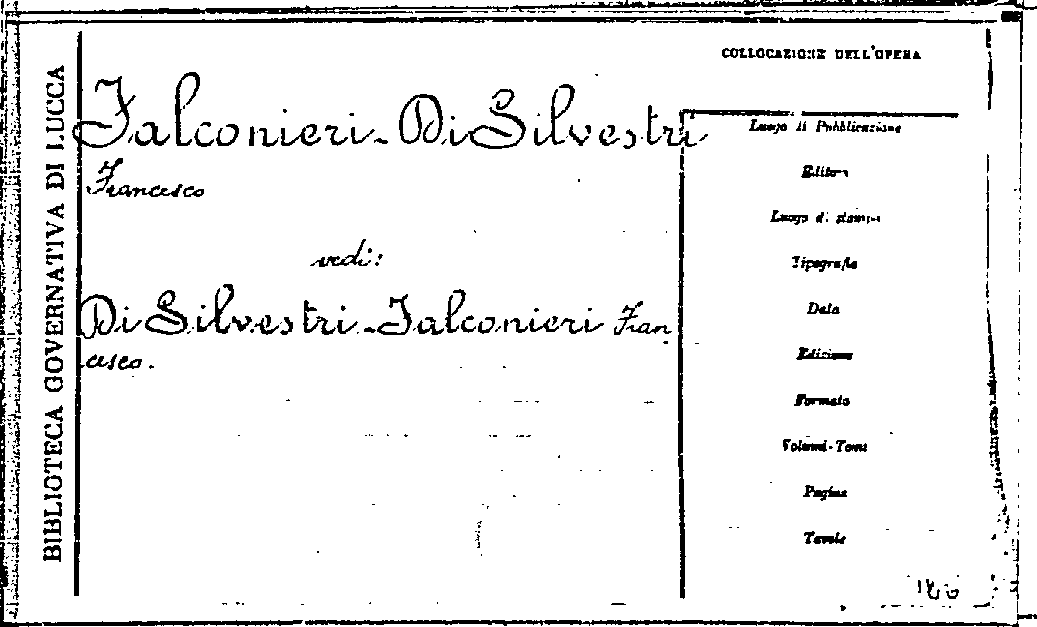 BIBLIOTECA GOVERNATIVA DI LUCCA
COLLOCAZIONE DELL'OPERA
Falconieri-Di Silvestri
Francesco
vedi:
Di Silvestri-Falconieri Fran
cesco.
Luogo di Pubblicazione
Editore
Luogo di stampa
Tipografia
Data
Edizione
Formato
Volumi-Tomi
Pagine
Tavole